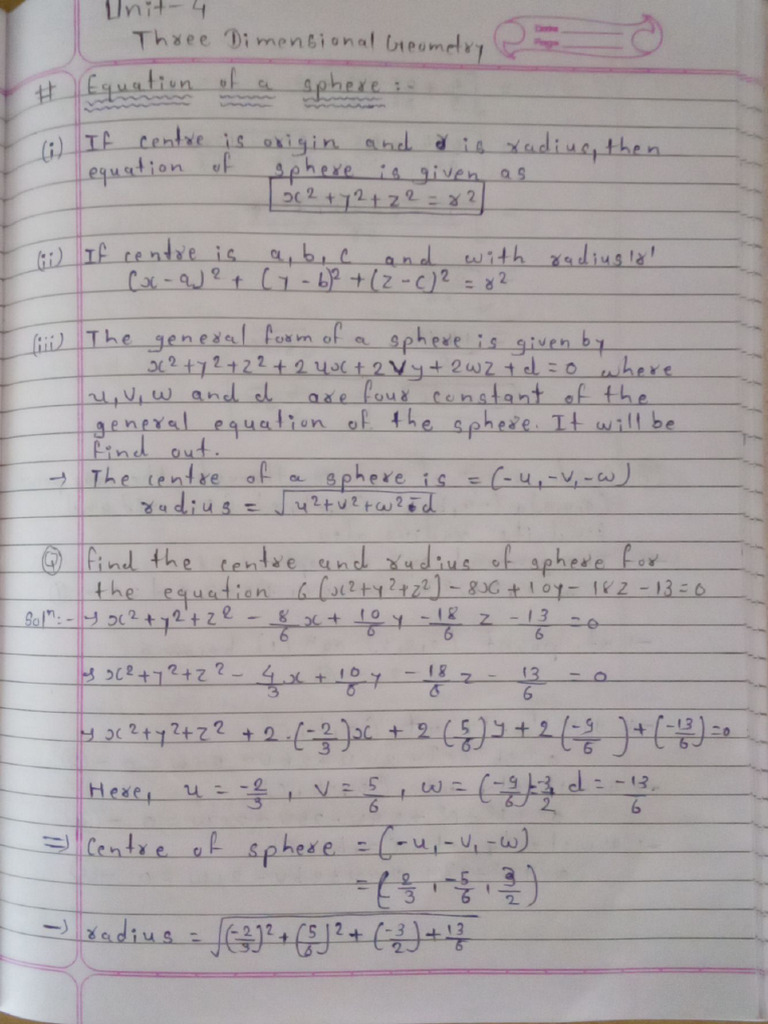 Unit-4
Three Dimensional Geometry
# Equation of a sphere :-
(i) If centre is origin and r is radius, then
equation of sphere is given as
x² + y² + z² = r²
(ii) If centre is a, b, c and with radius 'r'
(x - a)² + (y - b)² + (z - c)² = r²
(iii) The general form of a sphere is given by
x² + y² + z² + 2ux + 2vy + 2wz + d = 0 where
u, v, w and d are four constant of the
general equation of the sphere. It will be
find out.
→ The centre of a sphere is = (-u, -v, -w)
radius = √(u² + v² + w² - d)
Q find the centre and radius of sphere for
the equation 6(x² + y² + z²) - 8x + 10y - 18z - 13 = 0
Solⁿ:- → x² + y² + z² - 8/6 x + 10/6 y - 18/6 z - 13/6 = 0
→ x² + y² + z² - 4/3 x + 10/6 y - 18/6 z - 13/6 = 0
→ x² + y² + z² + 2·(-2/3)x + 2(5/6)y + 2(-9/6) + (-13/6) = 0
Here, u = -2/3, v = 5/6, w = (-9/6) = -3/2, d = -13/6
⇒ Centre of sphere = (-u, -v, -w)
= (2/3, -5/6, 3/2)
→ radius = √((-2/3)² + (5/6)² + (-3/2) + 13/6)